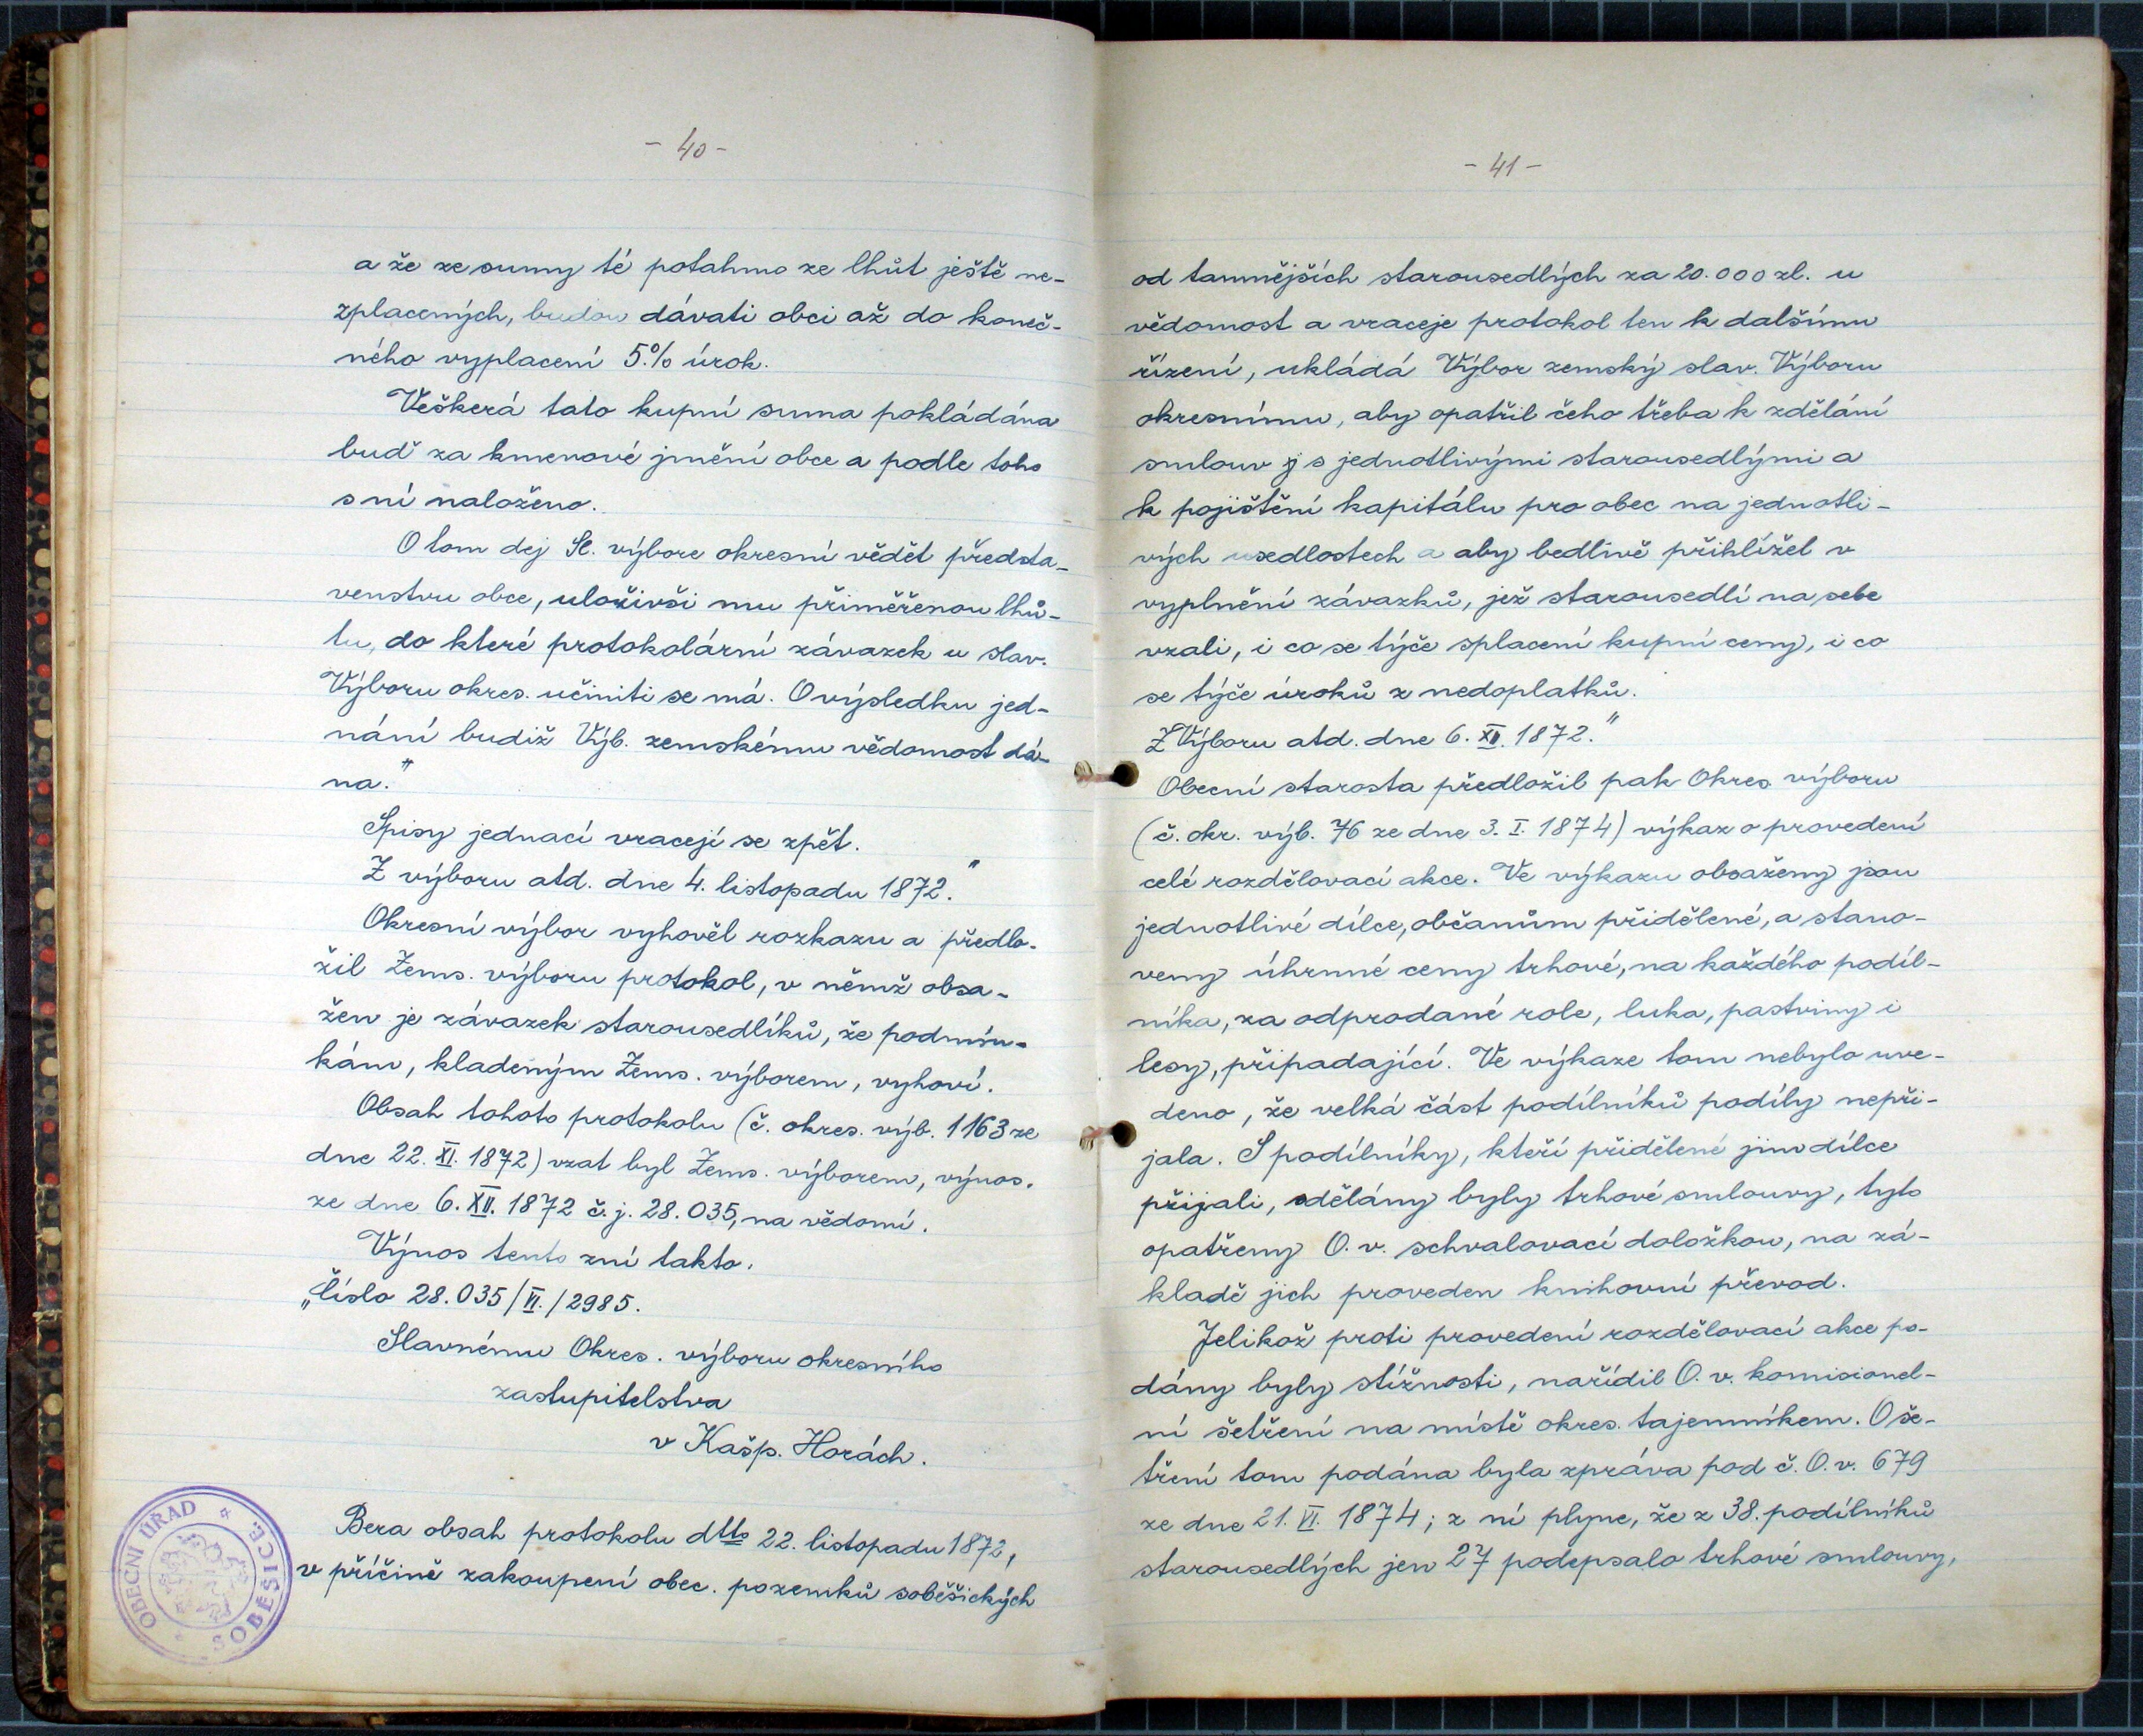 - 40 -
a že ze sumy té potahmo ze lhůt ještě ne-
zplacených, budou dávati obci až do koneč-
ného vyplacení 5.% úrok.
Veškerá tato kupní suma pokládána
buď za kmenové jmění obce a podle toho
s ní naloženo.
O tom dej Sl. výbore okresní vědět předsta-
venstvu obce, uloživši mu přiměřenou lhů-
tu, do které protokolární závazek u slav.
Výboru okres. učiniti se má. O výsledku jed-
nání budiž Výb. zemskému vědomost dá-
na."
Spisy jednací vracejí se zpět.
Z výboru atd. dne 4. listopadu 1872."
Okresní výbor vyhověl rozkazu a předlo-
žil Zems. výboru protokol, v němž obsa-
žen je závazek starousedlíků, že podmín-
kám, kladeným Zems. výborem, vyhoví.
Obsah tohoto protokolu (č. okres. výb. 1163 ze
dne 22. XI. 1872) vzat byl Zems. výborem, výnos.
ze dne 6. XII. 1872 č. j. 28.035, na vědomí.
Výnos tento zní takto.
„Číslo 28.035/VI./2985.
Slavnému Okres. výboru okresního
zastupitelstva
v Kašp. Horách.
Bera obsah protokolu dtto 22. listopadu 1872,
v příčině zakoupení obec. pozemků soběšických
OBECNÍ ÚŘAD SOBĚŠICE
- 41 -
od tamnějších starousedlých za 20.000 zl. u
vědomost a vraceje protokol ten k dalšímu
řízení, ukládá Výbor zemský slav. Výboru
okresnímu, aby opatřil čeho třeba k zdělání
smluv s jednotlivými starousedlými a
k pojištění kapitálu pro obec na jednotli-
vých usedlostech a aby bedlivě přihlížel v
vyplnění závazků, jež starousedlí na sebe
vzali, i co se týče splacení kupní ceny, i co
se týče úroků z nedoplatků.
Z Výboru atd. dne 6. XII. 1872."
Obecní starosta předložil pak Okres. výboru
(č. okr. výb. 76 ze dne 3. I. 1874) výkaz o provedení
celé rozdělovací akce. Ve výkazu obsaženy jsou
jednotlivé dílce, občanům přidělené, a stano-
veny úhrnné ceny trhové, na každého podíl-
níka, za odprodané role, luka, pastviny i
lesy, připadající. Ve výkaze tom nebylo uve-
deno, že velká část podílníků podíly nepři-
jala. S podílníky, kteří přidělené jim dílce
přijali, sdělány byly trhové smlouvy, tyto
opatřeny O. v. schvalovací doložkou, na zá-
kladě jich proveden knihovní převod.
Jelikož proti provedení rozdělovací akce po-
dány byly stížnosti, nařídil O. v. komisionel-
ní šetření na místě okres. tajemníkem. O še-
tření tom podána byla zpráva pod č. O. v. 679
ze dne 21. VI. 1874; z ní plyne, že z 38. podílníků
starousedlých jen 27 podepsalo trhové smlouvy,